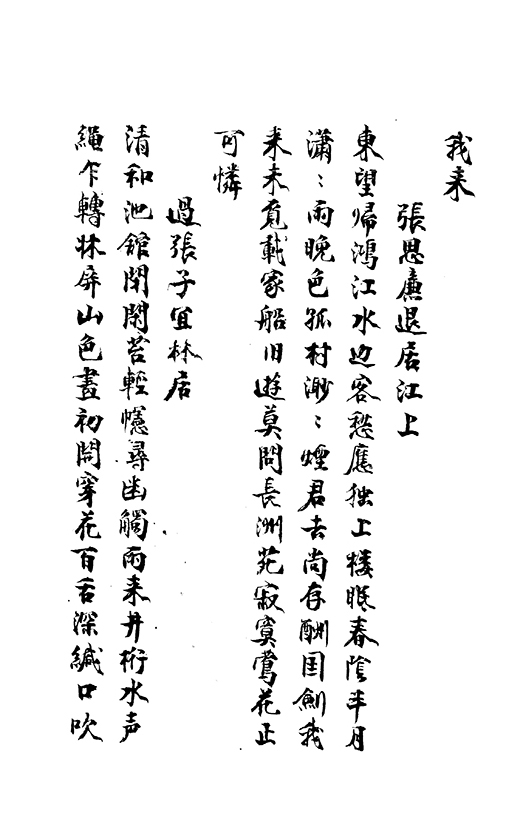 我来
張思廉退居江上
東望帰鴻江水边客愁應独上楼眠春陰半月
瀟〻雨晚色孤村渺〻煙君去尚存酬国劍我
来未覓載家船旧遊莫問長洲苑寂寞鶯花正
可憐
過張子宜林居
清和池館閉閑苔輕幰尋幽觸雨来井桁水声
繩乍轉牀屏山色畫初開穿花百舌深緘口吹